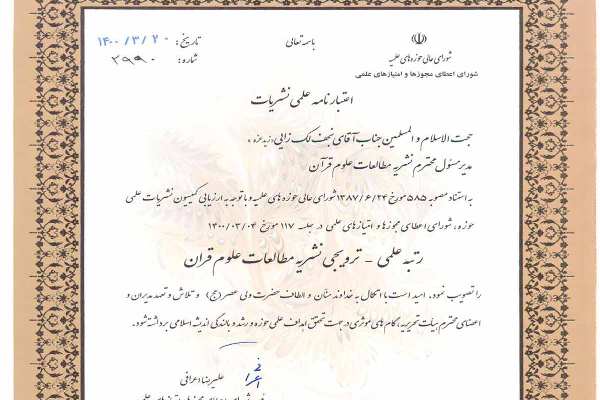 باسمه تعالی
شورای عالی حوزه های علمیه
شورای اعطای مجوزها و امتیازهای علمی
تاریخ: ۱۴۰۰/۳/۲۰
شماره: ۳۹۹۰
اعتبارنامه علمی نشریات
حجت الاسلام والمسلمین جناب آقای نجف لک زایی (زید عزه)
مدیر مسئول محترم نشریه مطالعات علوم قرآن
به استناد مصوبه ۵۸۵ مورخ ۱۳۸۷/۶/۲۴ شورای عالی حوزه های علمیه و با توجه به ارزیابی کمیسیون نشریات علمی
حوزه، شورای اعطای مجوزها و امتیازهای علمی در جلسه ۱۱۷ مورخ ۱۴۰۰/۰۳/۰۴
رتبه علمی - ترویجی نشریه مطالعات علوم قرآن
را تصویب نمود. امید است با اتکال به خداوند منان و الطاف حضرت ولی عصر (عج) و تلاش و تعهد مدیران و
اعضای محترم هیات تحریریه، گام های موثری در جهت تحقق اهداف علمی حوزه و رشد و بالندگی اندیشه اسلامی برداشته شود.
علیرضا اعرافی